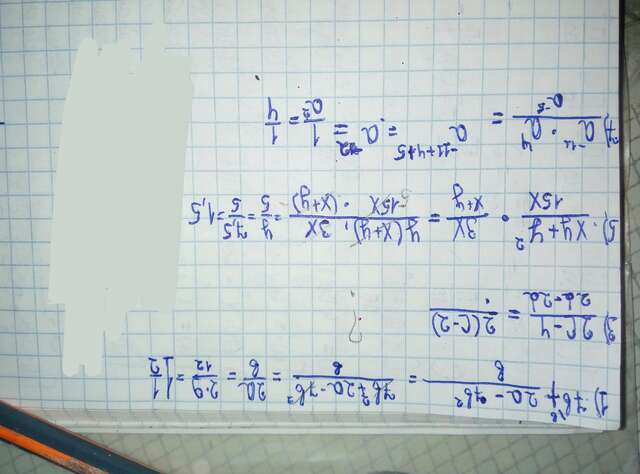 1) 7b + (2a - 7b²)/b = (7b² + 2a - 7b²)/b = 2a/b = 2·9/12 = 1 1/2
(2c-4)/(2d-2d) = 2(c-2)
5) (xy+y²)/15x · 3x/(x+y) = y(x+y)·3x/15x·(x+y) = y/5 = 7,5/5 = 1,5
7) a⁻¹¹ · a⁴/a⁻⁵ = a⁻¹¹⁺⁴⁺⁵ = a⁻² = 1/a² = 1/4